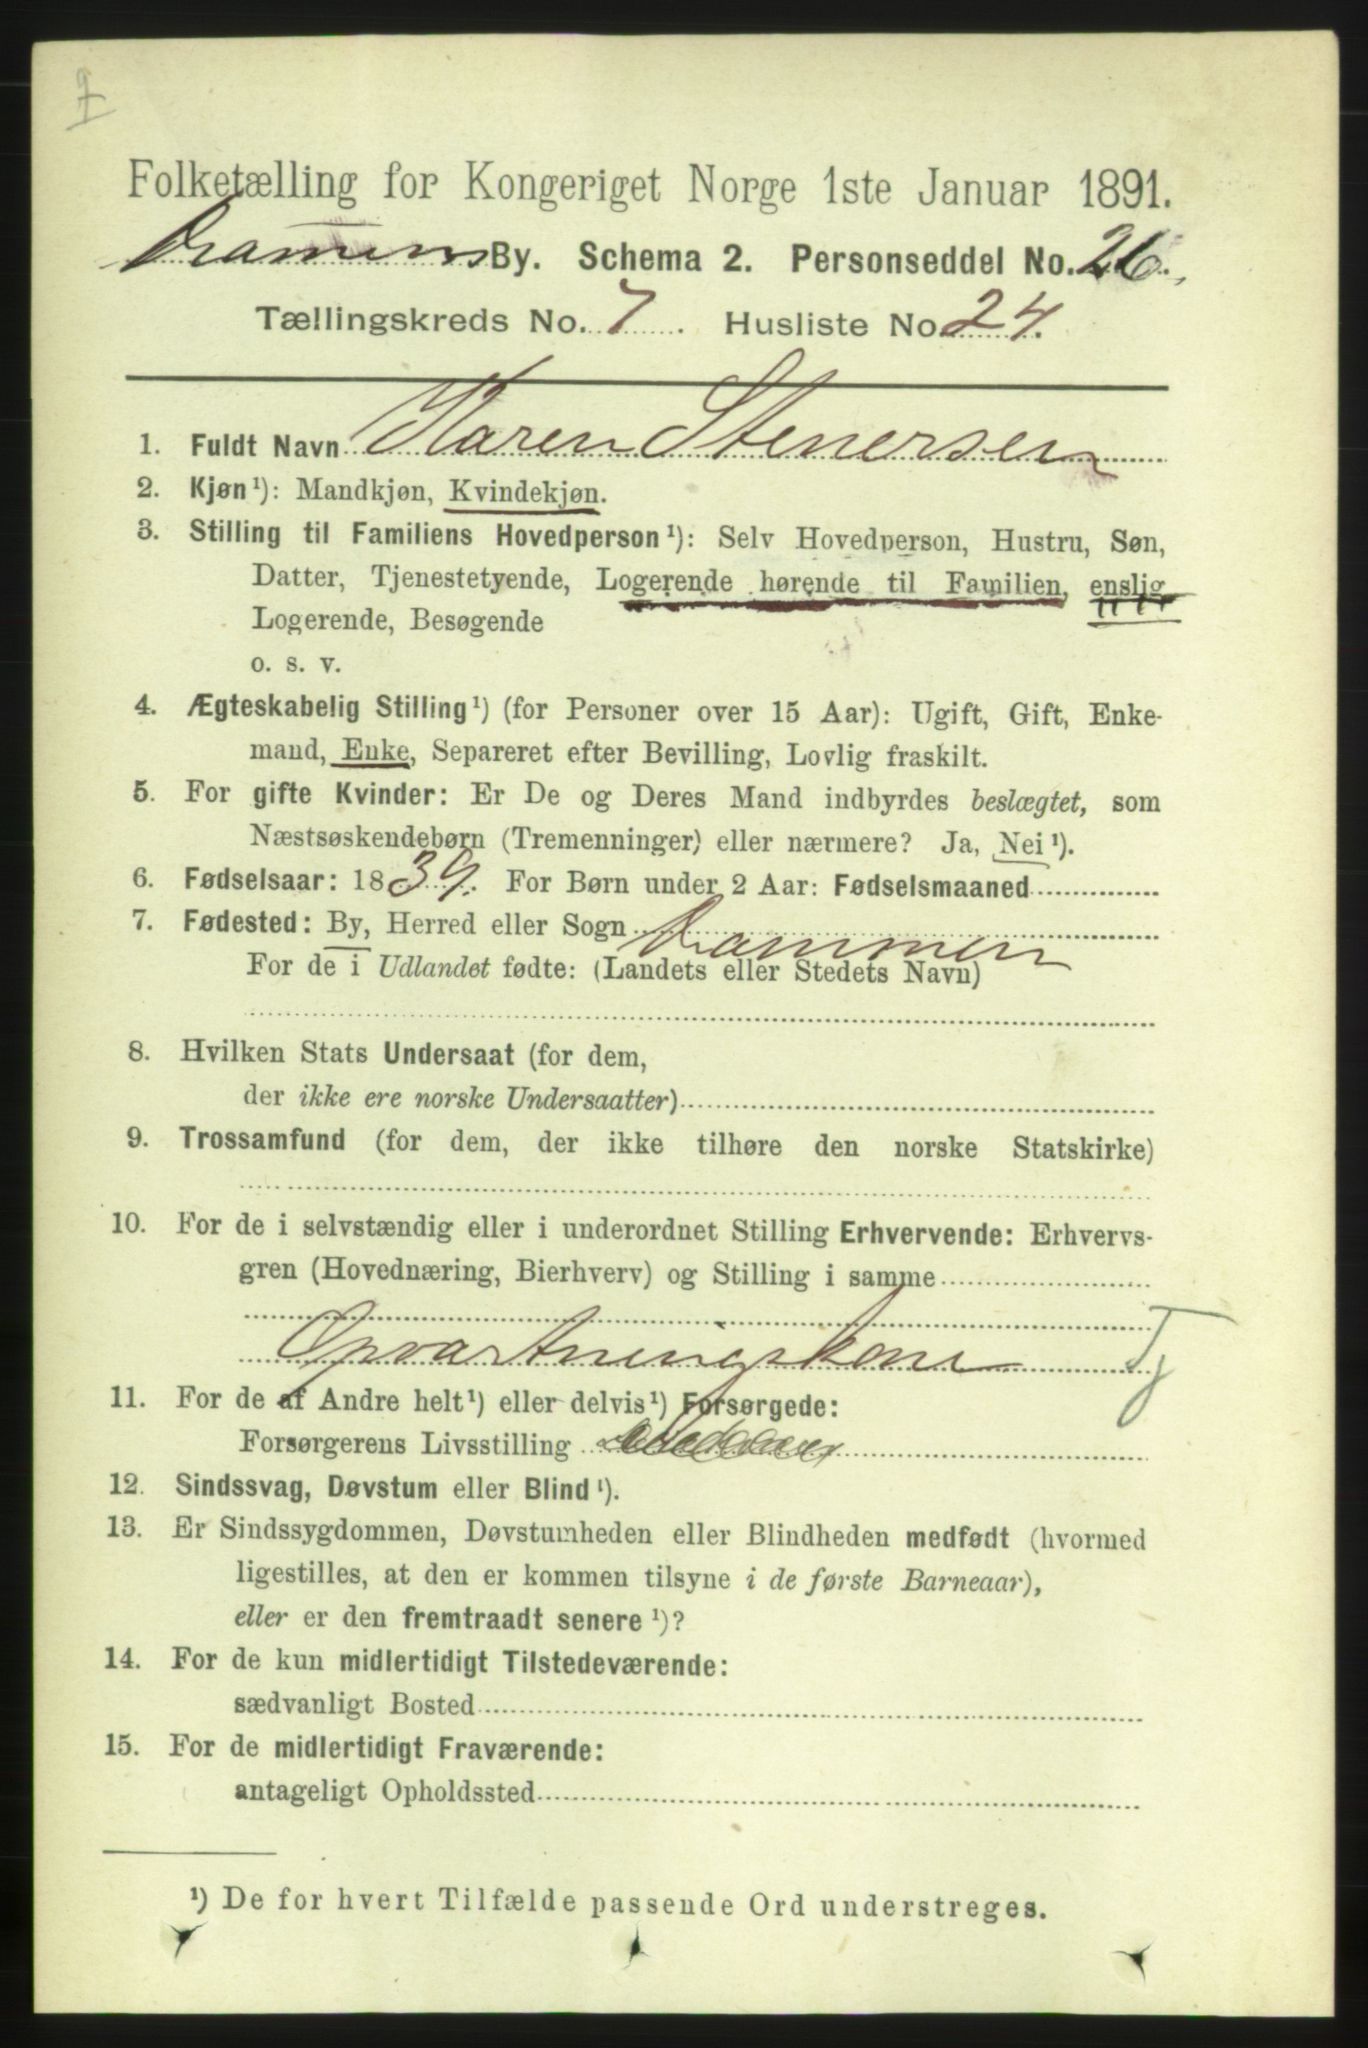 7
Folketælling for Kongeriget Norge 1ste Januar 1891.
Drammens By. Schema 2. Personseddel No. 26.
Tællingskreds No. 7. Husliste No. 24.
1. Fuldt Navn Karen Stenersen
2. Kjøn¹): Mandkjøn, Kvindekjøn.
3. Stilling til Familiens Hovedperson¹): Selv Hovedperson, Hustru, Søn,
Datter, Tjenestetyende, Logerende hørende til Familien, enslig
Logerende, Besøgende
o. s. v.
4. Ægteskabelig Stilling¹) (for Personer over 15 Aar): Ugift, Gift, Enke-
mand, Enke, Separeret efter Bevilling, Lovlig fraskilt.
5. For gifte Kvinder: Er De og Deres Mand indbyrdes beslægtet, som
Næstsøskendebørn (Tremenninger) eller nærmere? Ja, Nei¹).
6. Fødselsaar: 1839. For Børn under 2 Aar: Fødselsmaaned
7. Fødested: By, Herred eller Sogn Drammen
For de i Udlandet fødte: (Landets eller Stedets Navn)
8. Hvilken Stats Undersaat (for dem,
der ikke ere norske Undersaatter)
9. Trossamfund (for dem, der ikke tilhøre den norske Statskirke)
10. For de i selvstændig eller i underordnet Stilling Erhvervende: Erhvervs-
gren (Hovednæring, Bierhverv) og Stilling i samme
Opvartningskone Tj
11. For de af Andre helt¹) eller delvis¹) Forsørgede:
Forsørgerens Livsstilling
12. Sindssvag, Døvstum eller Blind¹).
13. Er Sindssygdommen, Døvstumheden eller Blindheden medfødt (hvormed
ligestilles, at den er kommen tilsyne i de første Barneaar),
eller er den fremtraadt senere¹)?
14. For de kun midlertidigt Tilstedeværende:
sædvanligt Bosted
15. For de midlertidigt Fraværende:
antageligt Opholdssted
¹) De for hvert Tilfælde passende Ord understreges.